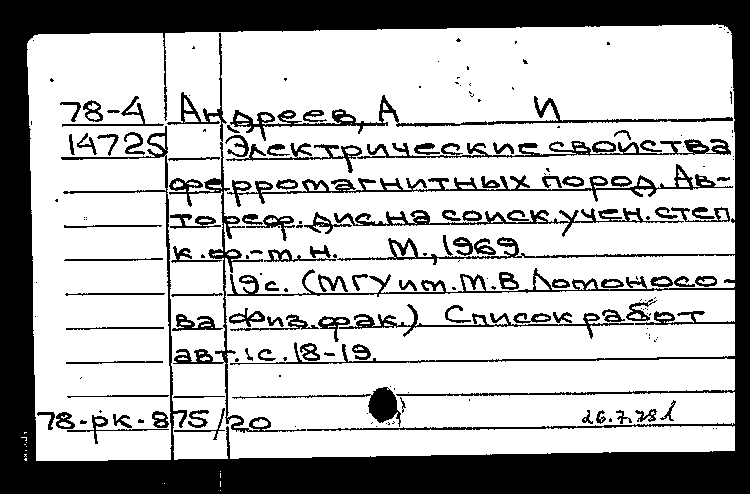 78-4 Андреев, А И
14725 Электрические свойства
ферромагнитных пород. Ав-
тореф. дис. на соиск. учен. степ.
к. ф.-т. н. М., 1969.
19с. (МГУ им. М.В Ломоносо-
ва Физ. фак.). Список работ
авт.: с. 18-19.
78-рк-875/20 26.7.78